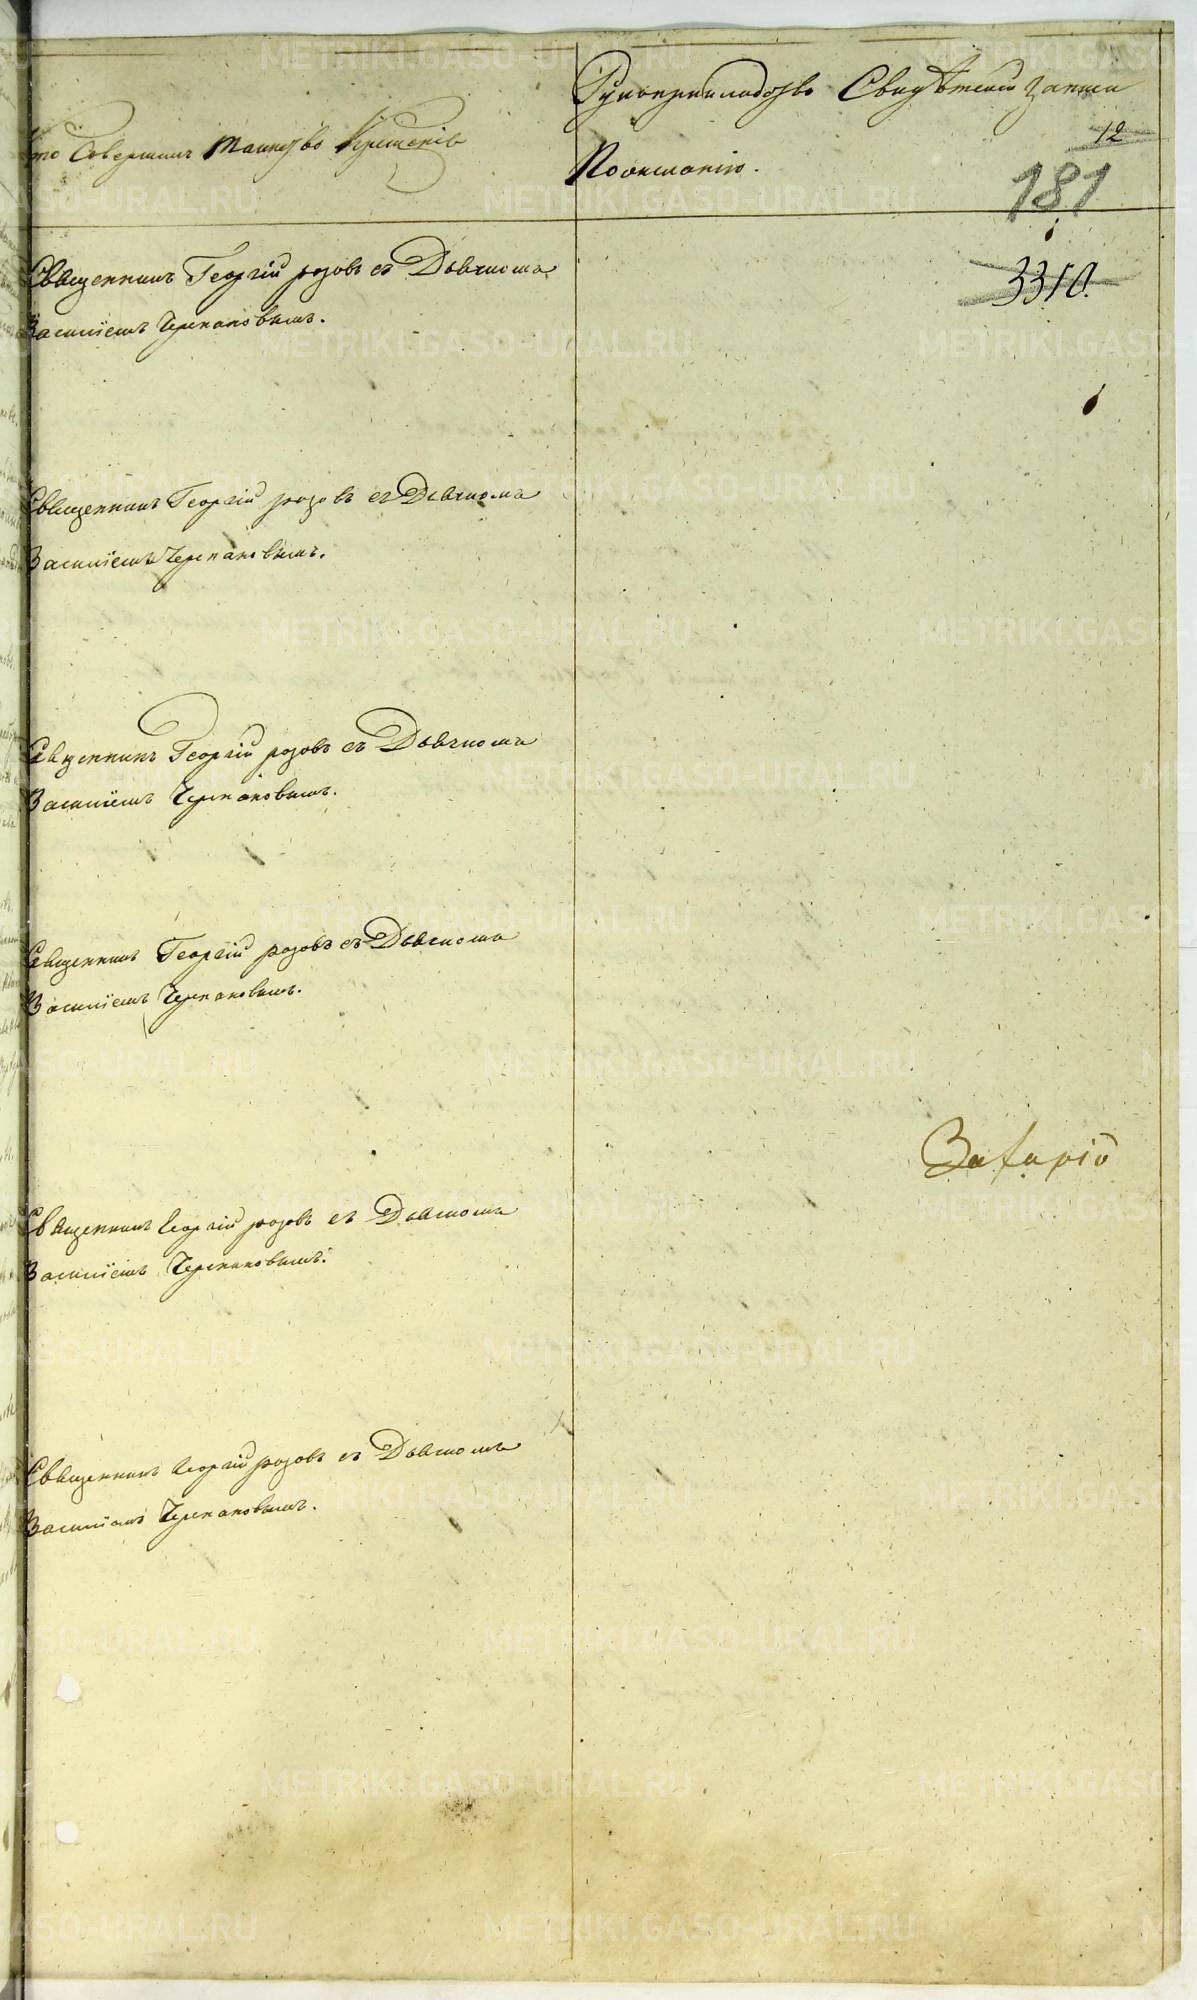 Кто Совершалъ таинство Крещенія
Рукоприкладство Свидѣтелей записи
По желанію.
12
181
3310.
Священникъ Георгій розовъ съ Дьячкомъ
Василіемъ Черепановымъ.
Священникъ Георгій розовъ съ Дьячкомъ
Василіемъ Черепановымъ.
Священникъ Георгій розовъ съ Дьячкомъ
Василіемъ Черепановымъ.
Священникъ Георгій розовъ съ Дьячкомъ
Василіемъ Черепановымъ.
Священникъ Георгій розовъ съ Дьячкомъ
Василіемъ Черепановымъ.
Священникъ Георгій розовъ съ Дьячкомъ
Василіемъ Черепановымъ.
METRIKI.GASO-URAL.RU